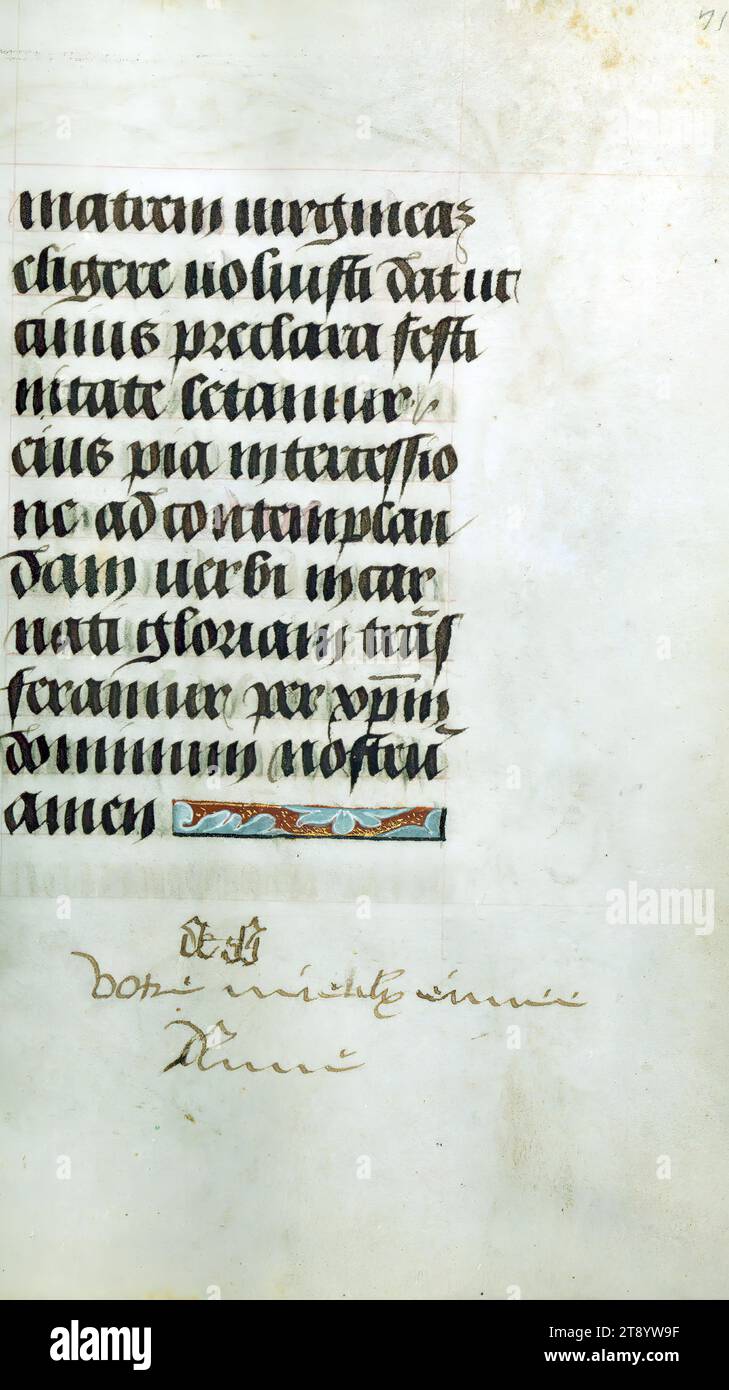 71
matrem uirgineaʒ
eligere uoluisti dat ut
cuius preclara festi
uitate letamur
eius pia intercessio
ne ad contemplan
dam uerbi incar
nati gloriam trās
feramur per xp̄m
dominum nostrū
amen
alamy
Image ID: 2T8YW9F
www.alamy.com